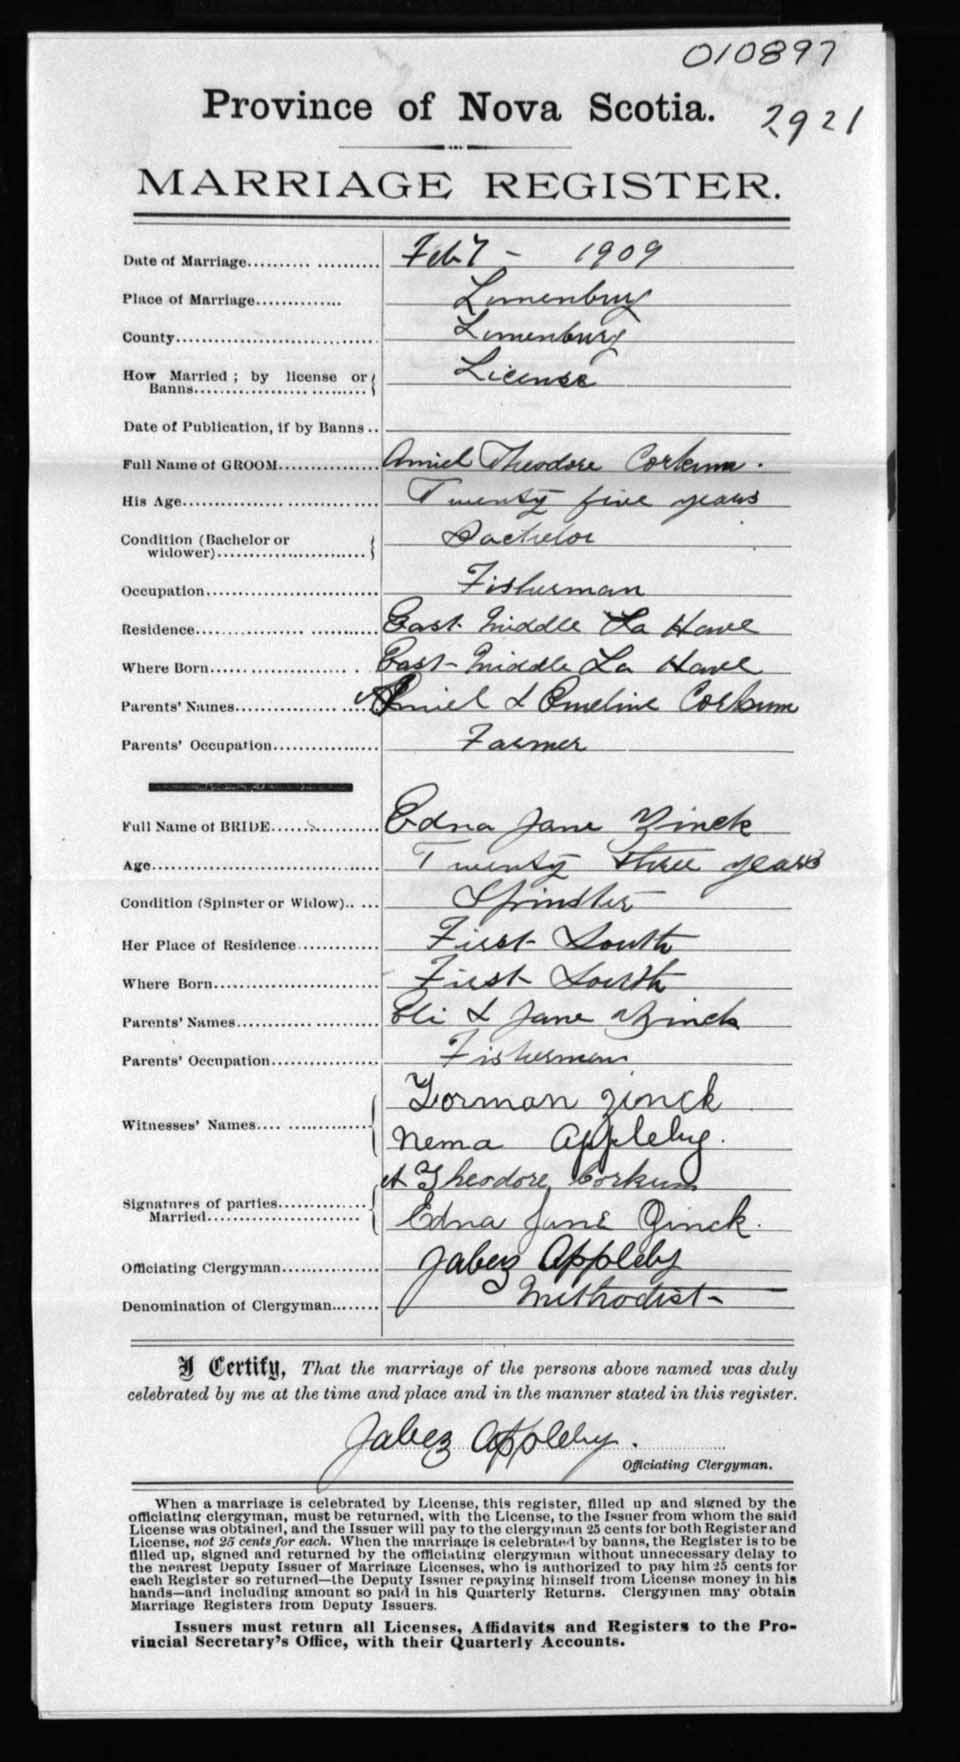 010897
Province of Nova Scotia. 2921
MARRIAGE REGISTER.
Date of Marriage.......... Feb 7 - 1909
Place of Marriage.............. Lunenburg
County.............................. Lunenburg
How Married ; by license or Banns.................. License
Date of Publication, if by Banns ..
Full Name of GROOM................ Amiel Theodore Corkum.
His Age.............................. Twenty five years
Condition (Bachelor or widower)........................ Bachelor
Occupation.......................... Fisherman
Residence............................ East Middle La Have
Where Born...................... East Middle La Have
Parents' Names.................... Amiel & Emeline Corkum
Parents' Occupation................ Farmer
Full Name of BRIDE................ Edna Jane Zinck
Age.................................... Twenty three years
Condition (Spinster or Widow)..... Spinster
Her Place of Residence............ First South
Where Born........................ First South
Parents' Names.................... Eli & Jane Zinck
Parents' Occupation................ Fisherman
Witnesses' Names.................. Gorman Zinck
Nema Appleby.
A Theodore Corkum
Signatures of parties Married...................... Edna Jane Zinck.
Officiating Clergyman................ Jabez Appleby
Denomination of Clergyman........ Methodist
I Certify, That the marriage of the persons above named was duly
celebrated by me at the time and place and in the manner stated in this register.
Jabez Appleby.
Officiating Clergyman.
When a marriage is celebrated by License, this register, filled up and signed by the
officiating clergyman, must be returned, with the License, to the Issuer from whom the said
License was obtained, and the Issuer will pay to the clergyman 25 cents for both Register and
License, not 25 cents for each. When the marriage is celebrated by banns, the Register is to be
filled up, signed and returned by the officiating clergyman without unnecessary delay to
the nearest Deputy Issuer of Marriage Licenses, who is authorized to pay him 25 cents for
each Register so returned—the Deputy Issuer repaying himself from License money in his
hands—and including amount so paid in his Quarterly Returns. Clergymen may obtain
Marriage Registers from Deputy Issuers.
Issuers must return all Licenses, Affidavits and Registers to the Pro-
vincial Secretary's Office, with their Quarterly Accounts.